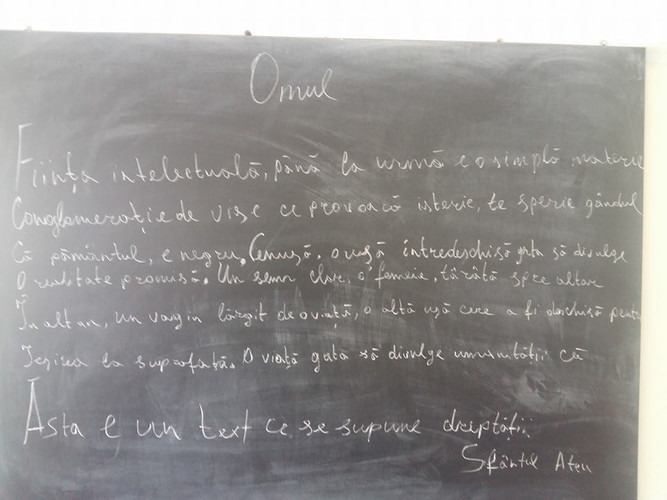 Omul
Ființa intelectuală, până la urmă e o simplă materie
Conglomerație de vise ce provoacă isterie, te sperie gândul
Că pământul, e negru, Cenușă. o ușă întredeschisă gata să divulge
O realitate promisă. Un semn clar, o femeie, târâtă spre altare
În altan, un vagin lărgit de o viață, o altă ușă cere a fi deschisă pentru
Ieșirea la suprafață. O viață gata să divulge umanității că
Asta e un text ce se supune dreptății.
Sfântul Ateu